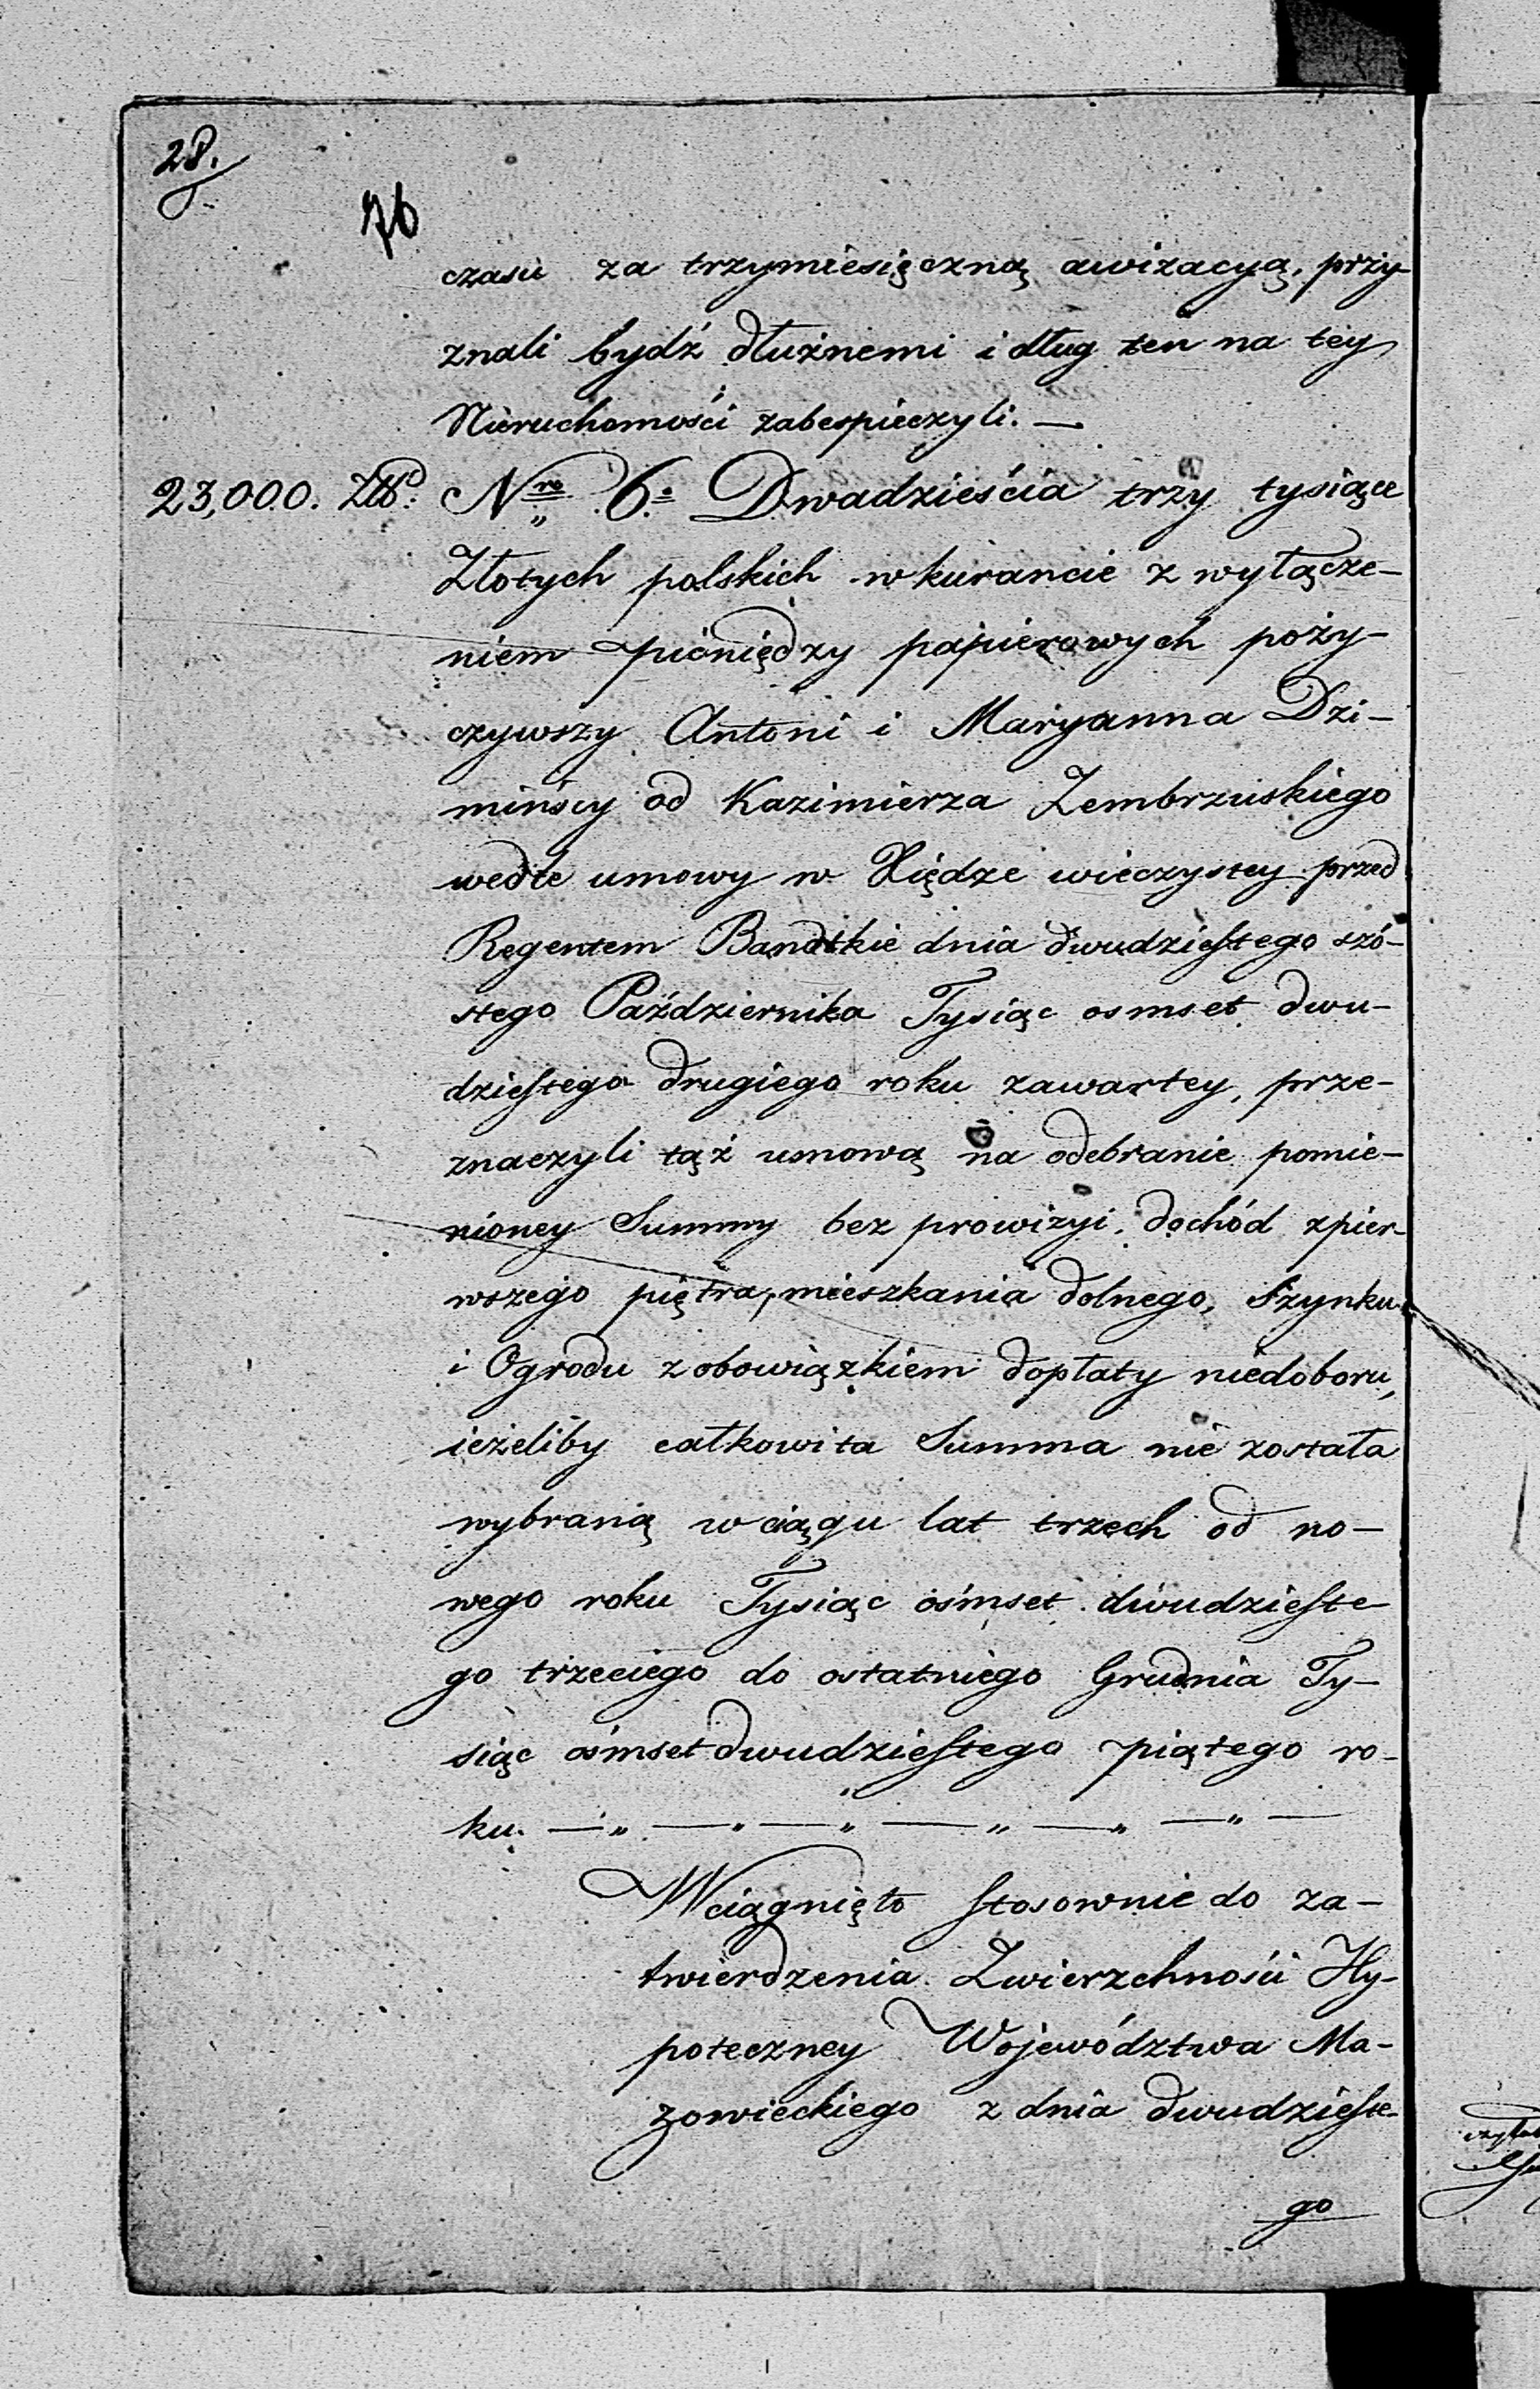 28.
76
czasie za trzymiesięczną awizacyą, przy-
znali bydź dłużnemi i dług ten na tey
Nieruchomości zabespieczyli. —
23,000. Złp. Nro 6. Dwadzieścia trzy tysiące
Złotych polskich w kurancie z wyłącze-
niem pieniędzy papierowych poży-
czywszy Antoni i Maryanna Dzi-
mińscy od Kazimierza Zembrzuskiego
wedle umowy w Xiędze wieczystey przed
Regentem Bandtkie dnia dwudziestego szó-
stego Października Tysiąc osmset dwu-
dziestego drugiego roku zawartey, prze-
znaczyli tąż umową na odebranie pomie-
nioney Summy bez prowizyi, dochód z pier-
wszego piętra, mieszkania dolnego, Szynku
i Ogrodu z obowiązkiem dopłaty niedoboru,
ieżeliby całkowita Summa nie została
wybraną w ciągu lat trzech od no-
wego roku Tysiąc ośmset dwudzieste
go trzeciego do ostatniego Grudnia Ty-
siąc ośmset dwudziestego piątego ro-
ku. — „ — „ — „ — „ — „ — „ —
Wciągnięto stosownie do za-
twierdzenia Zwierzchności Hy-
poteczney Województwa Ma-
zowieckiego z dnia dwudzieste-
go